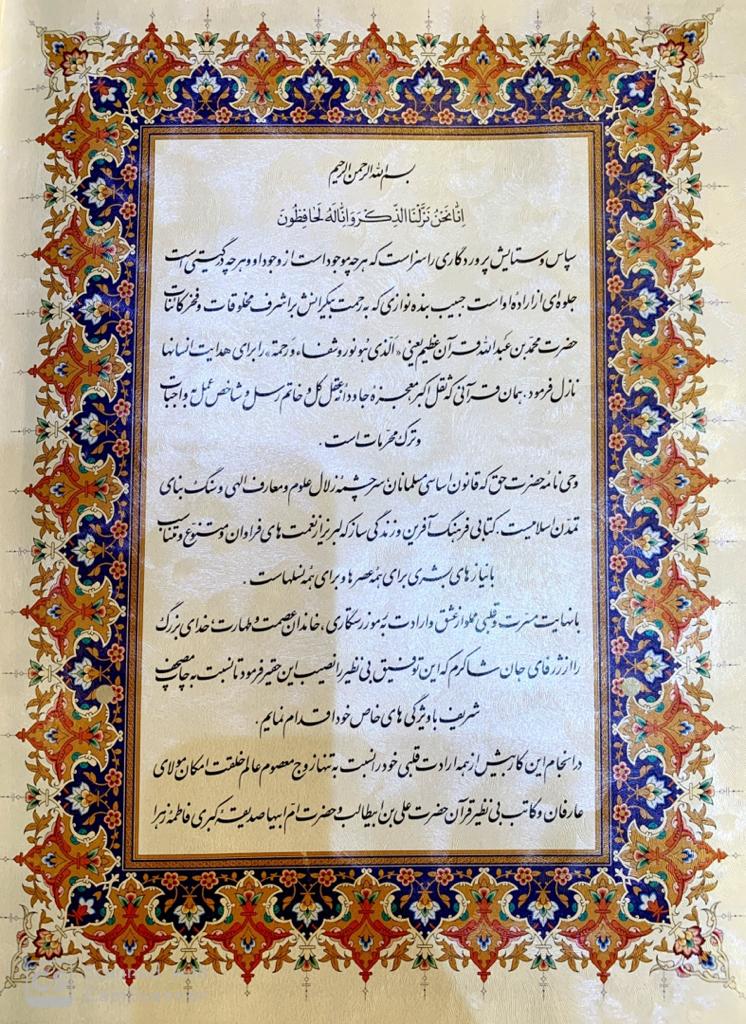 بسم الله الرحمن الرحیم
اِنّا نَحنُ نَزَّلنَا الذِّكرَ وَاِنّا لَهُ لَحافِظُونَ
سپاس و ستایش پروردگاری را سزاست که هر چه موجود است از وجود او و هر چه در گیتی است
جلوه‌ای از اراده او است. حبیب بنده نوازی که به رحمت بیکرانش بر اشرف مخلوقات و فخر کائنات
حضرت محمد بن عبدالله قرآن عظیم یعنی «الّذی هو نور و شفاء و رحمة» را برای هدایت انسانها
نازل فرمود. همان قرآنی که ثقل اکبر معجزهٔ جاودانه عقل کل و خاتم رسل و شاخص عمل به واجبات
و ترک محرمات است.
وحی نامهٔ حضرت حق که قانون اساسی مسلمانان سرچشمه زلال علوم و معارف الهی و سنگ بنای
تمدّن اسلامیت. کتابی فرهنگ آفرین و زندگی ساز که لبریز از نعمت های فراوان و متنوّع و متناسب
با نیاز های بشری برای همهٔ عصر ها و برای همهٔ نسلهاست.
با نهایت مسرت و قلبی مملو از عشق و ارادت به موز رستگاری، خاندان عصمت و طهارت، خدای بزرگ
را از ژرفای جان شاکرم که این توفیق بی نظیر را نصیب این حقیر فرمود تا نسبت به چاپ مصحف
شریف با ویژگی های خاص خود اقدام نمایم.
در انجام این کار بیش از همه ارادت قلبی خود را نسبت به تنها زوج معصوم عالم خلقت امکان مولای
عارفان و کاتب بی نظیر قرآن حضرت علی بن ابیطالب و حضرت امّ ابیها صدیقهٔ کبری فاطمهٔ زهرا